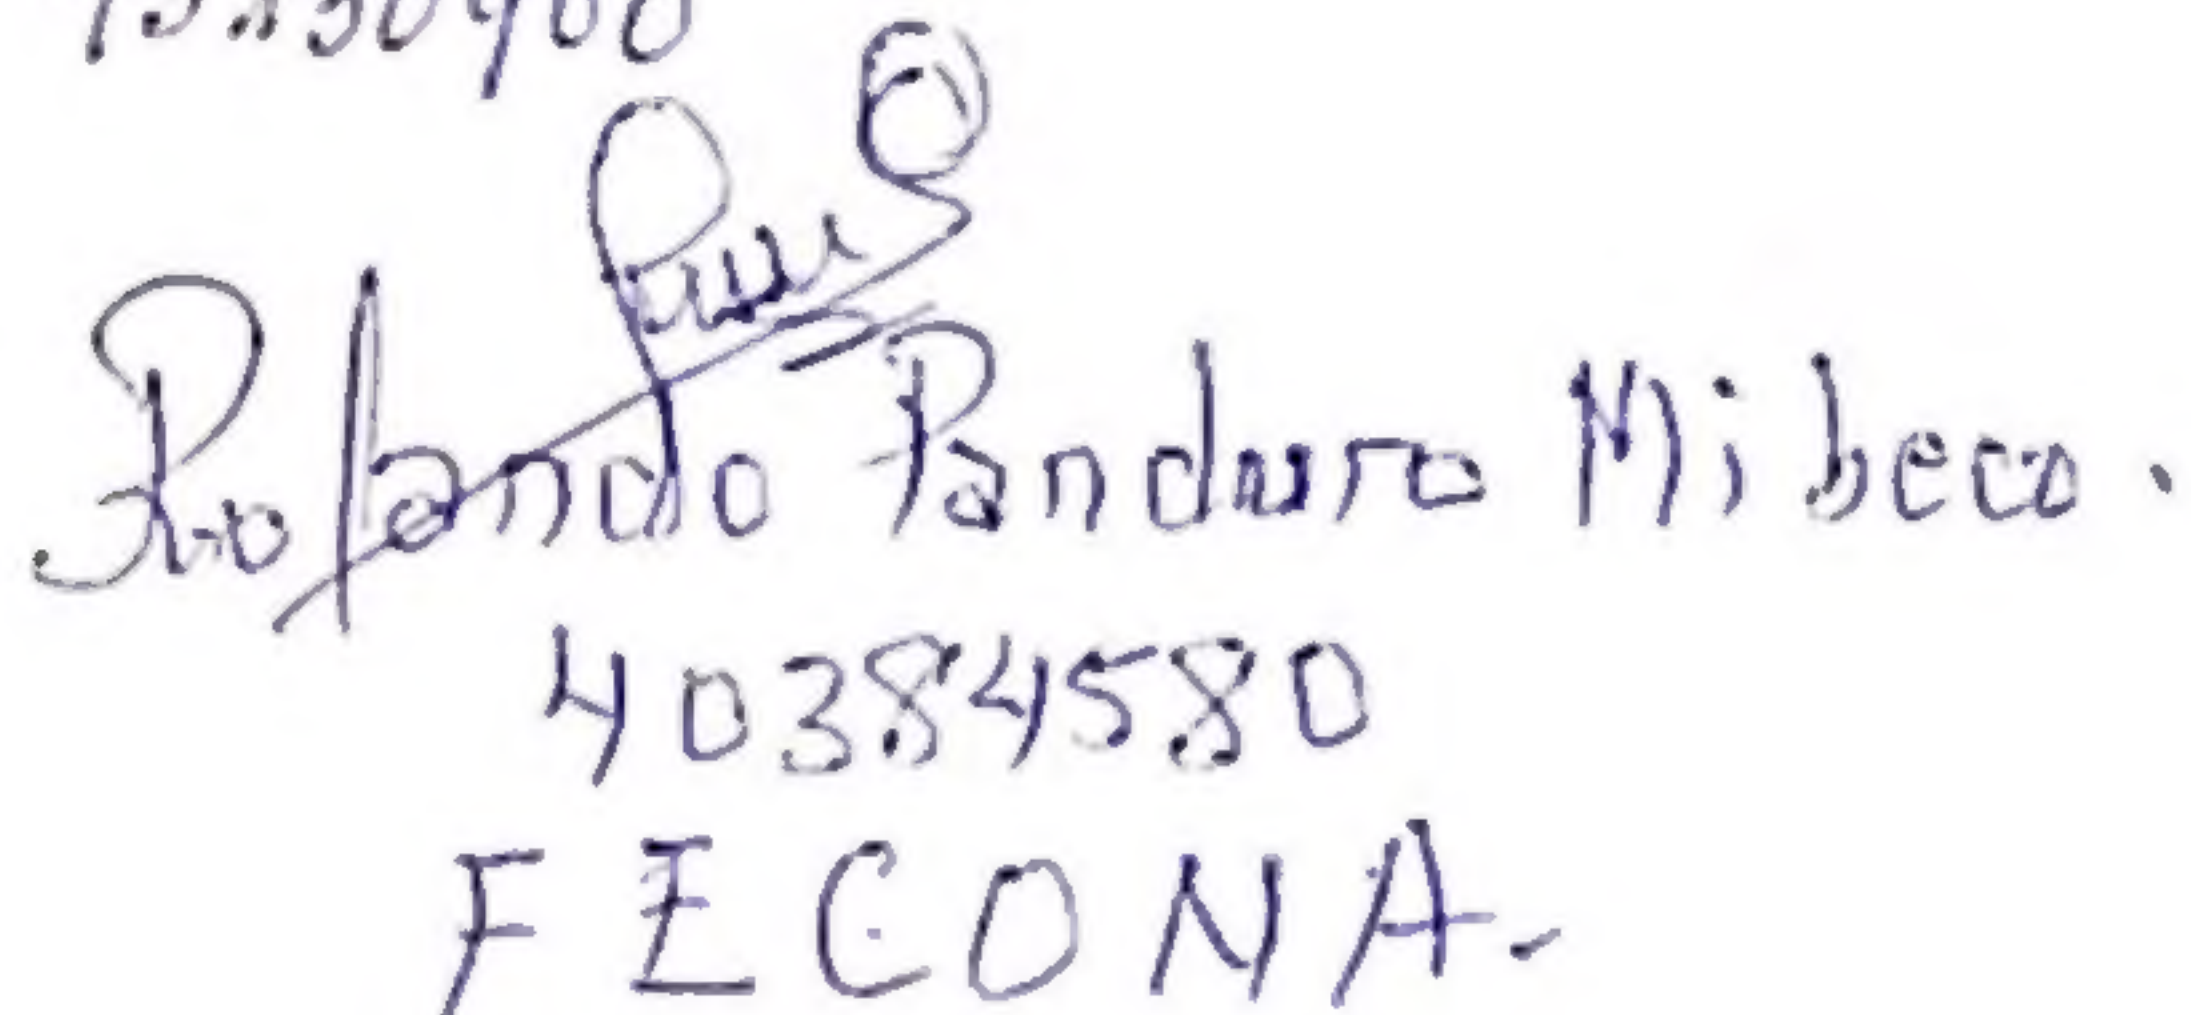 Rolando Panduro Mibeco.
40384580
FECONA.